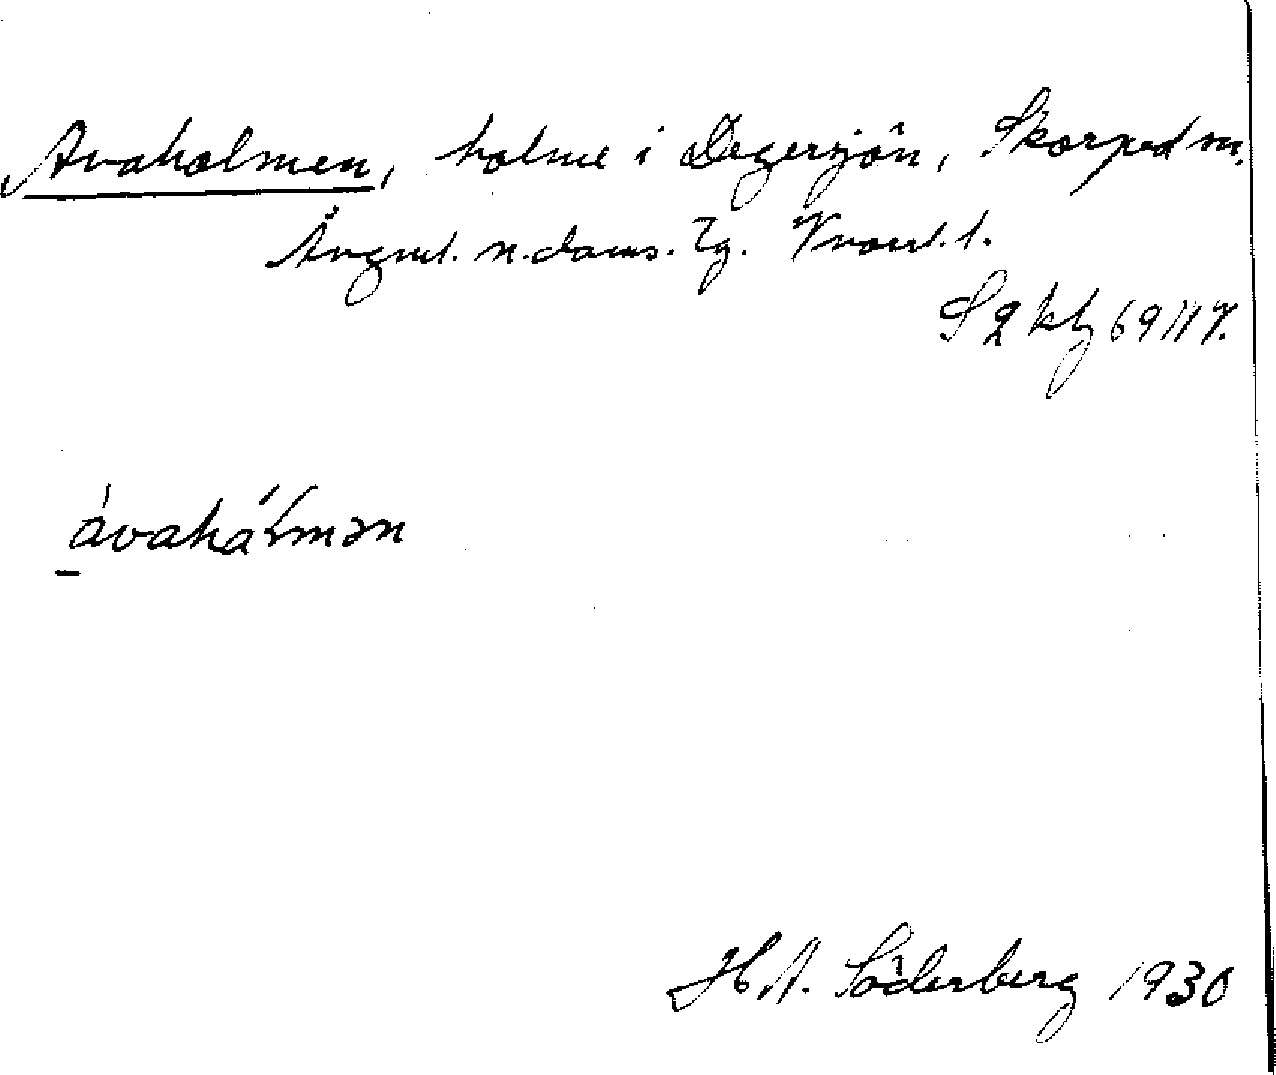 Avaholmen, holme i Degersjön, Skorped sn.
Ångml. n. doms. Tg. Vnorrl. l.
S 2 kbl 69 117.
ávahálmən
H A. Söderberg 1930